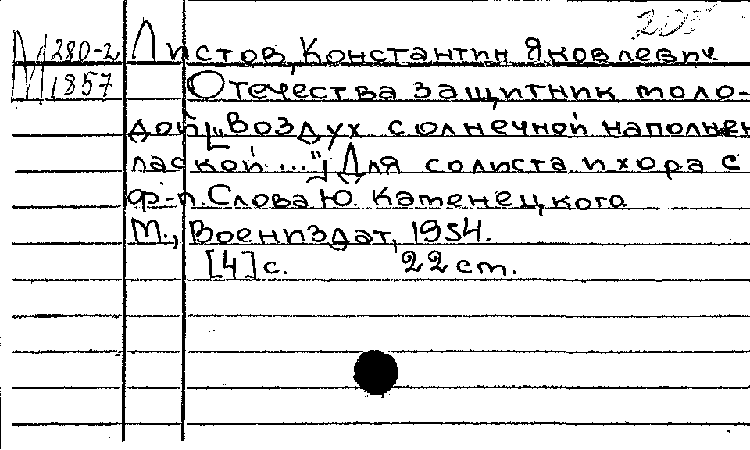 М 280-2 Листов, Константин Яковлевич
1857 Отечества защитник моло-
дой ["Воздух солнечной наполнен
лаской ..."] Для солиста и хора с
ф-п. Слова Ю. Каменецкого
М., Воениздат, 1954.
[4] с. 22 см.